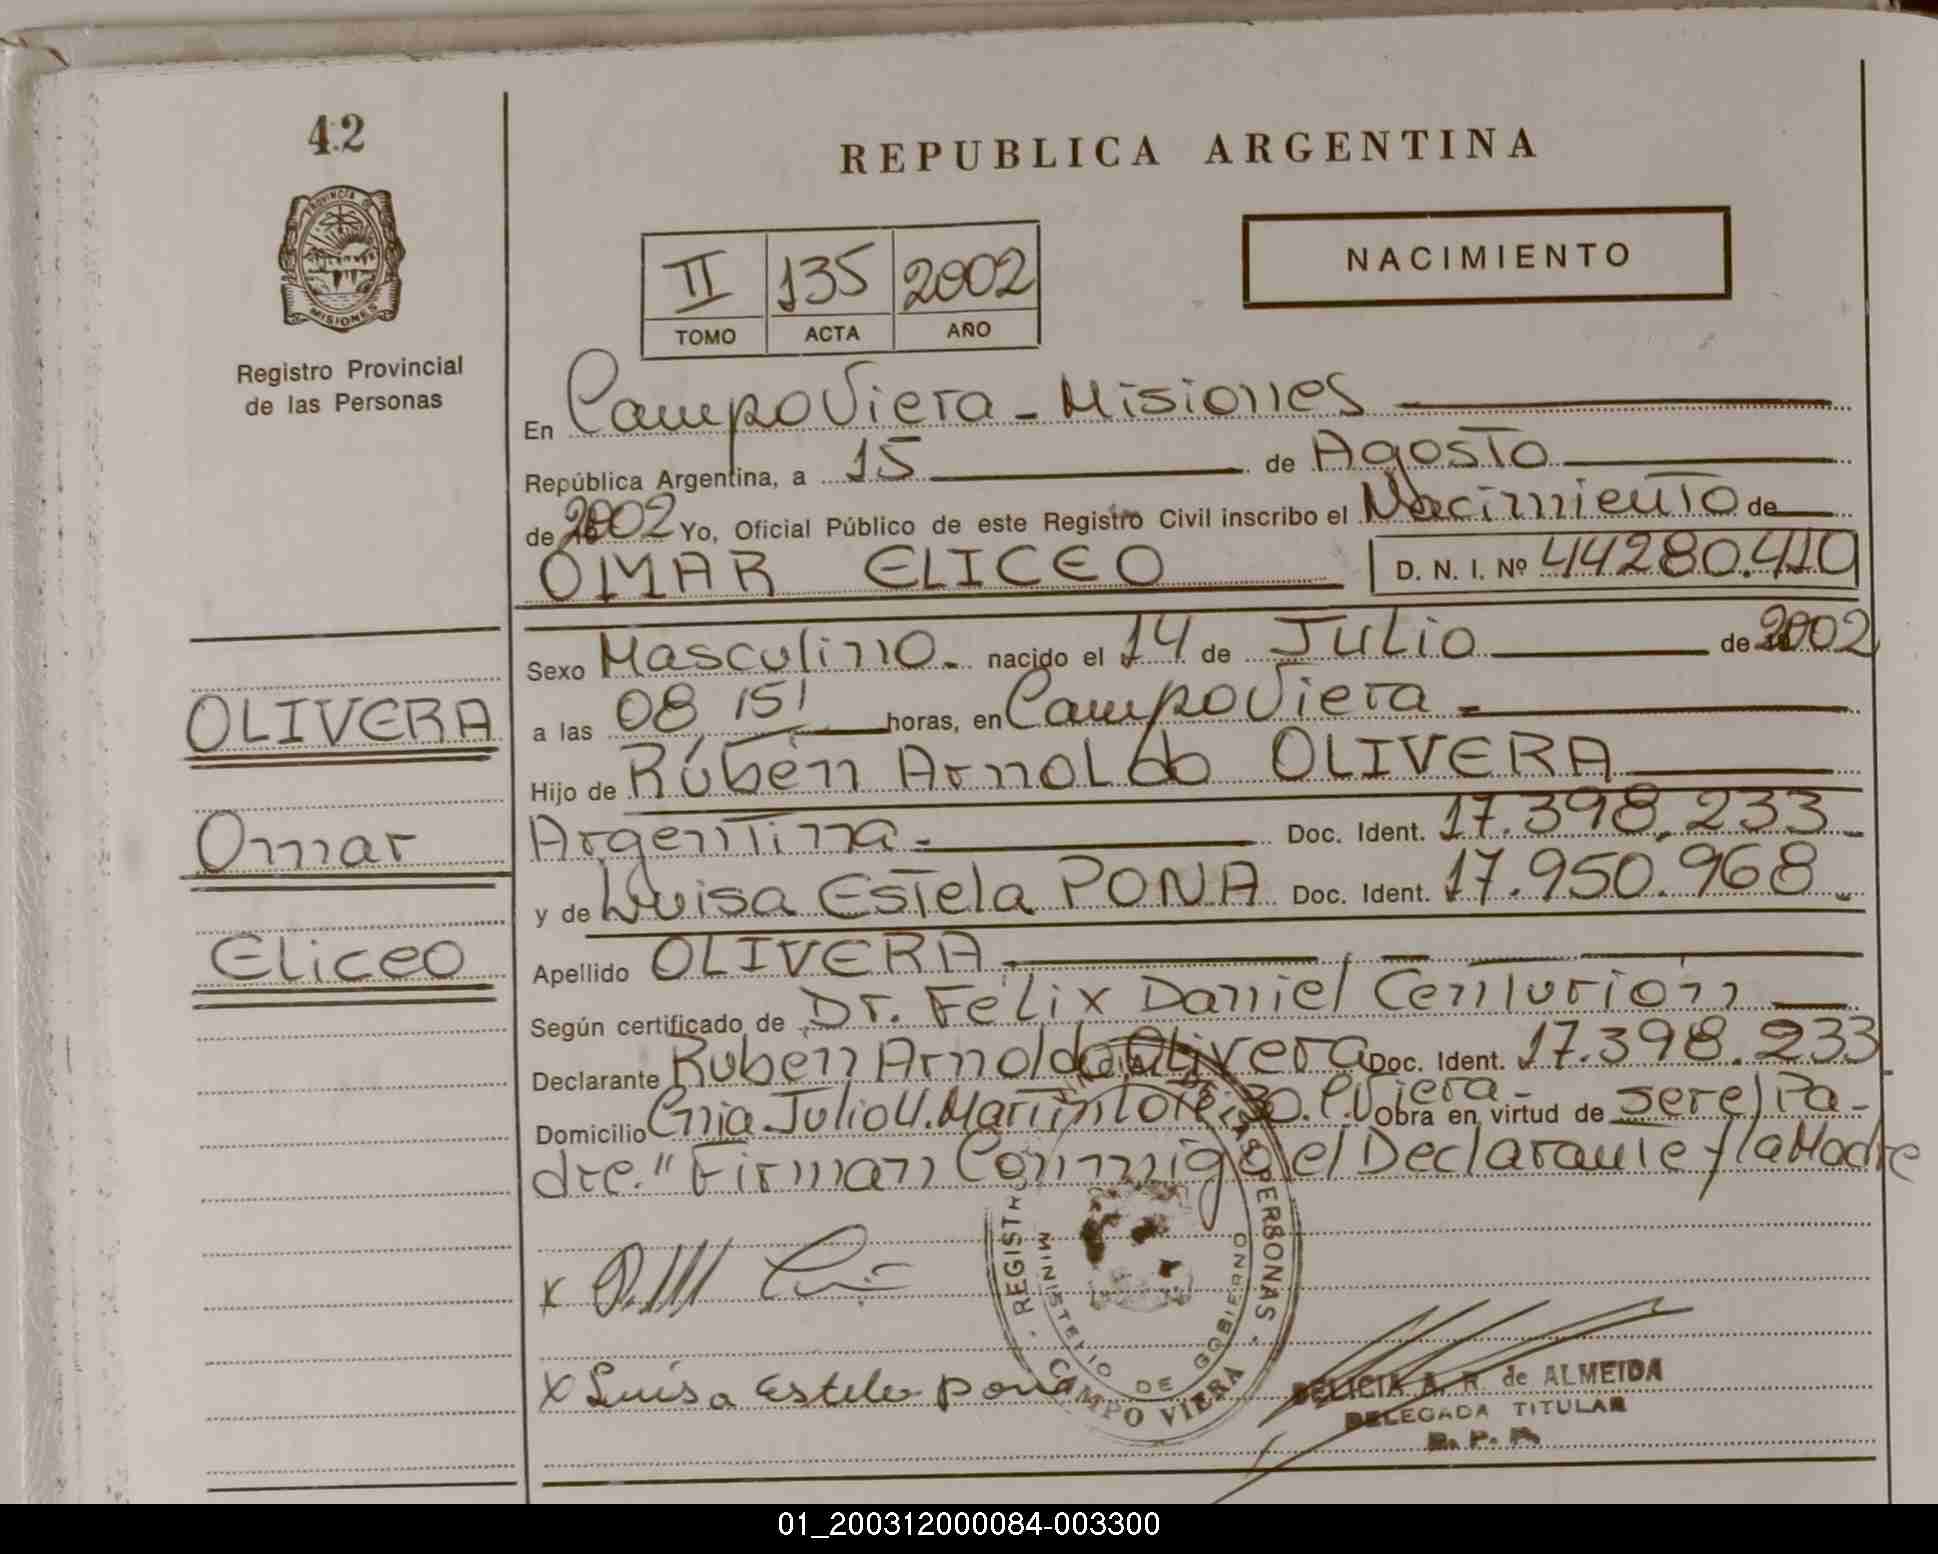 42
PROVINCIA DE
MISIONES
Registro Provincial
de las Personas
OLIVERA
Omar
Eliceo
REPUBLICA ARGENTINA
NACIMIENTO
II 135 2002
TOMO ACTA AÑO
En Campo Viera - Misiones
República Argentina, a 15 de Agosto
de 2002 Yo, Oficial Público de este Registro Civil inscribo el Nacimiento de
OMAR ELICEO D. N. I. Nº 44280.410
Sexo Masculino. nacido el 14 de Julio de 2002
a las 08,15' horas, en Campo Viera -
Hijo de Rubén Arnoldo OLIVERA
Argentina - Doc. Ident. 17.398.233 -
y de Luisa Estela PONA Doc. Ident. 17.950.968.
Apellido OLIVERA
Según certificado de Dr. Félix Daniel Centurión
Declarante Rubén Arnoldo Olivera Doc. Ident. 17.398.233
Domicilio Cnia. Julio U. Martin Lote: 30. C. Viera - Obra en virtud de ser el Pa-
dre." Firman Conmigo el Declarante y la Madre
x
x Luisa Estela pona
REGISTRO DE LAS PERSONAS
MINISTERIO DE GOBIERNO
CAMPO VIERA
DELICIA A. R. de ALMEIDA
DELEGADA TITULAR
R. P. P.
01_200312000084-003300